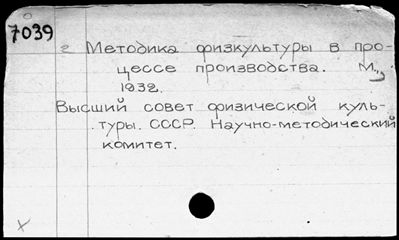 7039
г Методика физкультуры в про-
цессе производства. М.,
1932.
Высший совет физической куль-
туры. СССР. Научно-методический
комитет.